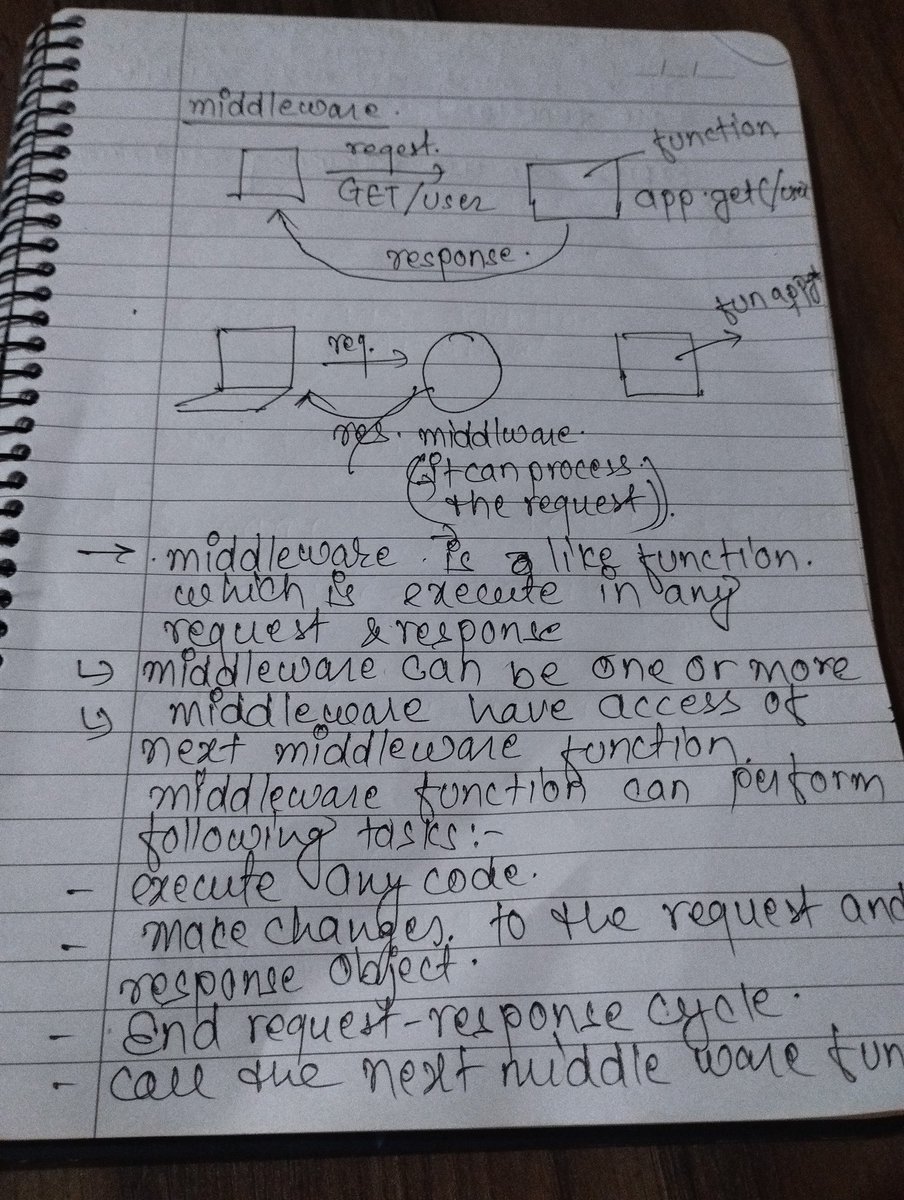 middleware.
reqest.
function
GET/user
app.get(/
response.
req.
res. middlware.
(It can process
the request)).
→ . middleware is a like function.
which is execute in any
request & response
↳ middleware can be one or more
↳ middleware have access of
next middleware function.
middleware function can perform
following tasks:-
- execute any code.
- make changes. to the request and
response object.
- End request-response cycle.
- call the next middle ware fun